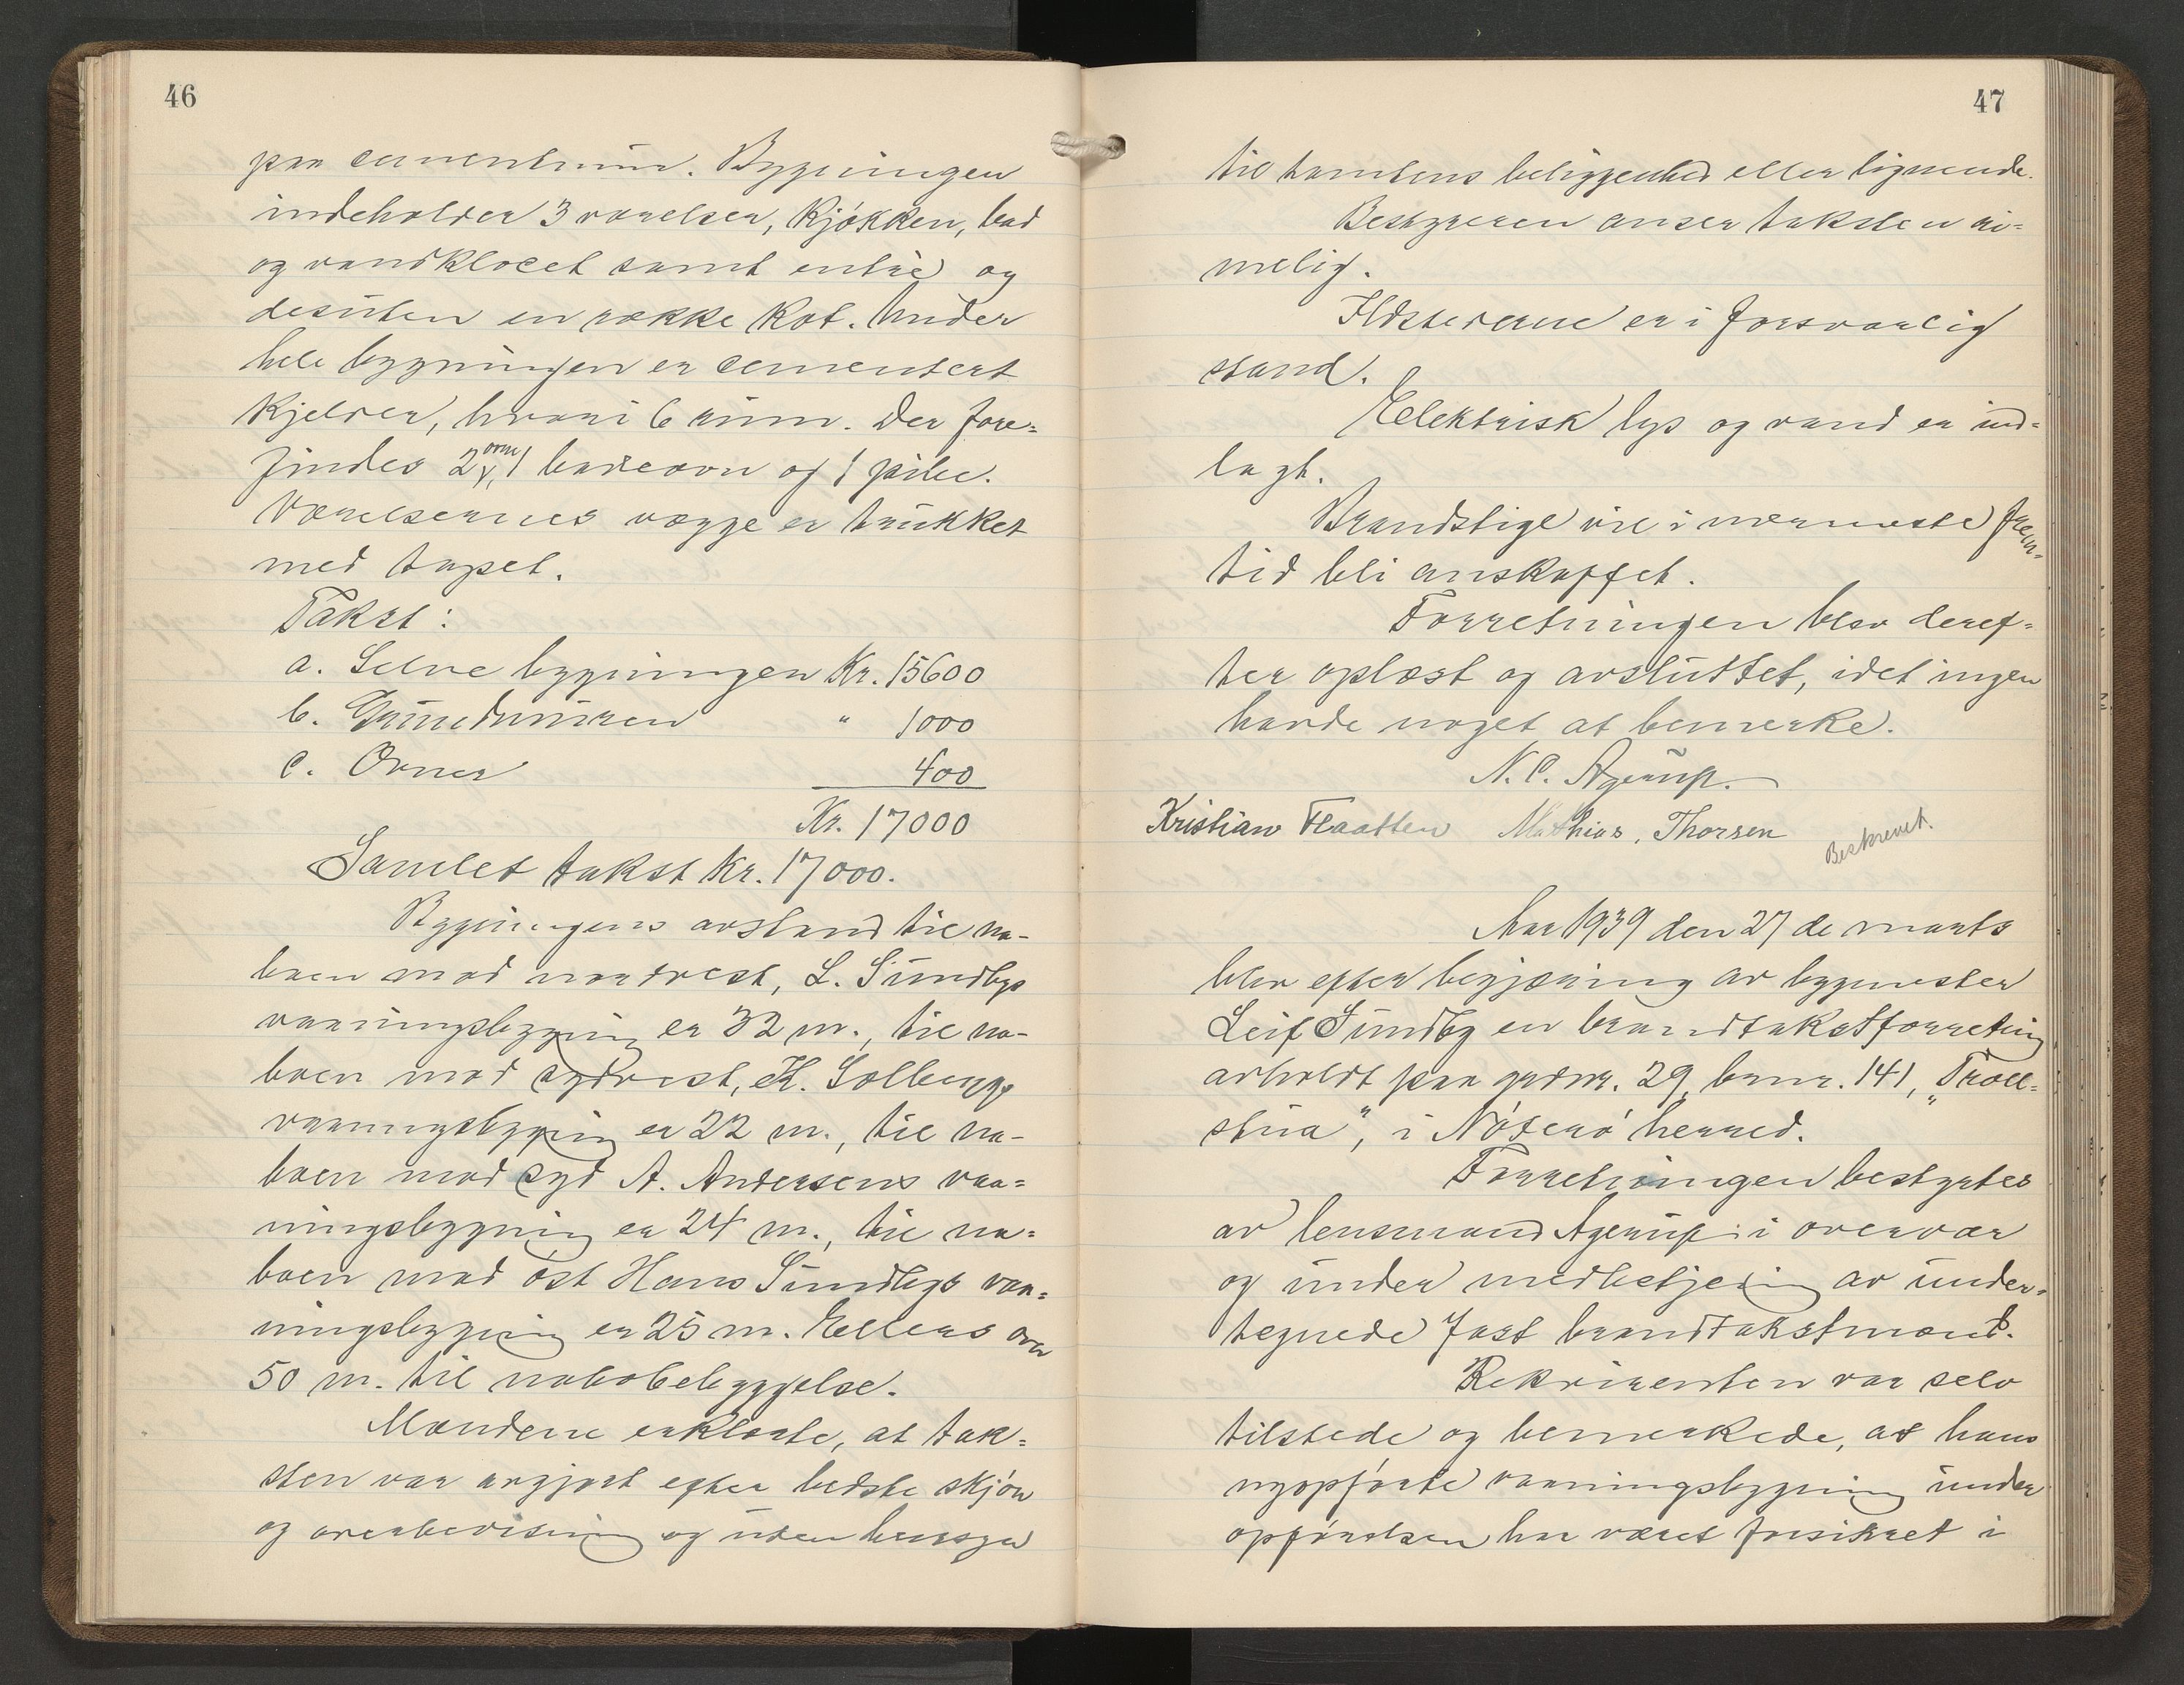 46
paa cementmur. Bygningen
indeholder 3 værelser, kjøkken, bad
og vandkloset samt entré og
desuten en række kot. Under
hele bygningen er cementert
kjelder, hvori 6 rum. Der fore-
findes 2 ovne, 1 badeovn og 1 pibe.
Værelsernes vægge er trukket
med tapet.
Takst:
a. Selve bygningen Kr. 15600
b. Grundmuren " 1000
c. Ovner 400
Kr. 17000
Samlet takst Kr. 17000.
Bygningens avstand til na-
boen mod nordvest, L. Sundbys
vaaningsbygning er 32 m., til na-
boen mod sydvest, K. Solbergs
vaaningsbygning er 22 m., til na-
boen mod syd A. Andersens vaa-
ningsbygning er 24 m., til na-
boen mod øst Hans Sundbys vaa-
ningsbygning er 25 m. Ellers over
50 m. til nabobebyggelse.
Mændene erklærte, at tak-
sten var avgjort efter bedste skjøn
og overbevisning og uten hensyn
47
til tomtens beliggenhed eller lignende.
Bestyreren anser taksten ri-
melig.
Ildstederne er i forsvarlig
stand.
Elektrisk lys og vand er ind-
lagt.
Brandstige vil i nærmeste frem-
tid bli anskaffet.
Forretningen blev deref-
ter oplæst og avsluttet, idet ingen
havde noget at bemerke.
N. C. Agerup.
Kristian Flaatten Mathias Thorsen
Beskrevet.
Aar 1939 den 27 de marts
blev efter begjæring av bygmester
Leif Sundby en brandtakstforretning
avholdt paa gardnr. 29, brnr. 141, "Troll-
stua", i Nøterø herred.
Forretningen bestyrtes
av lensmand Agerup i overvær
og under medbetjening av under-
tegnede fast brandtakstmænd.
Rekvirenten var selv
tilstede og bemerkede, at hans
nyopførte vaaningsbygning under
opførelsen har været forsikret i